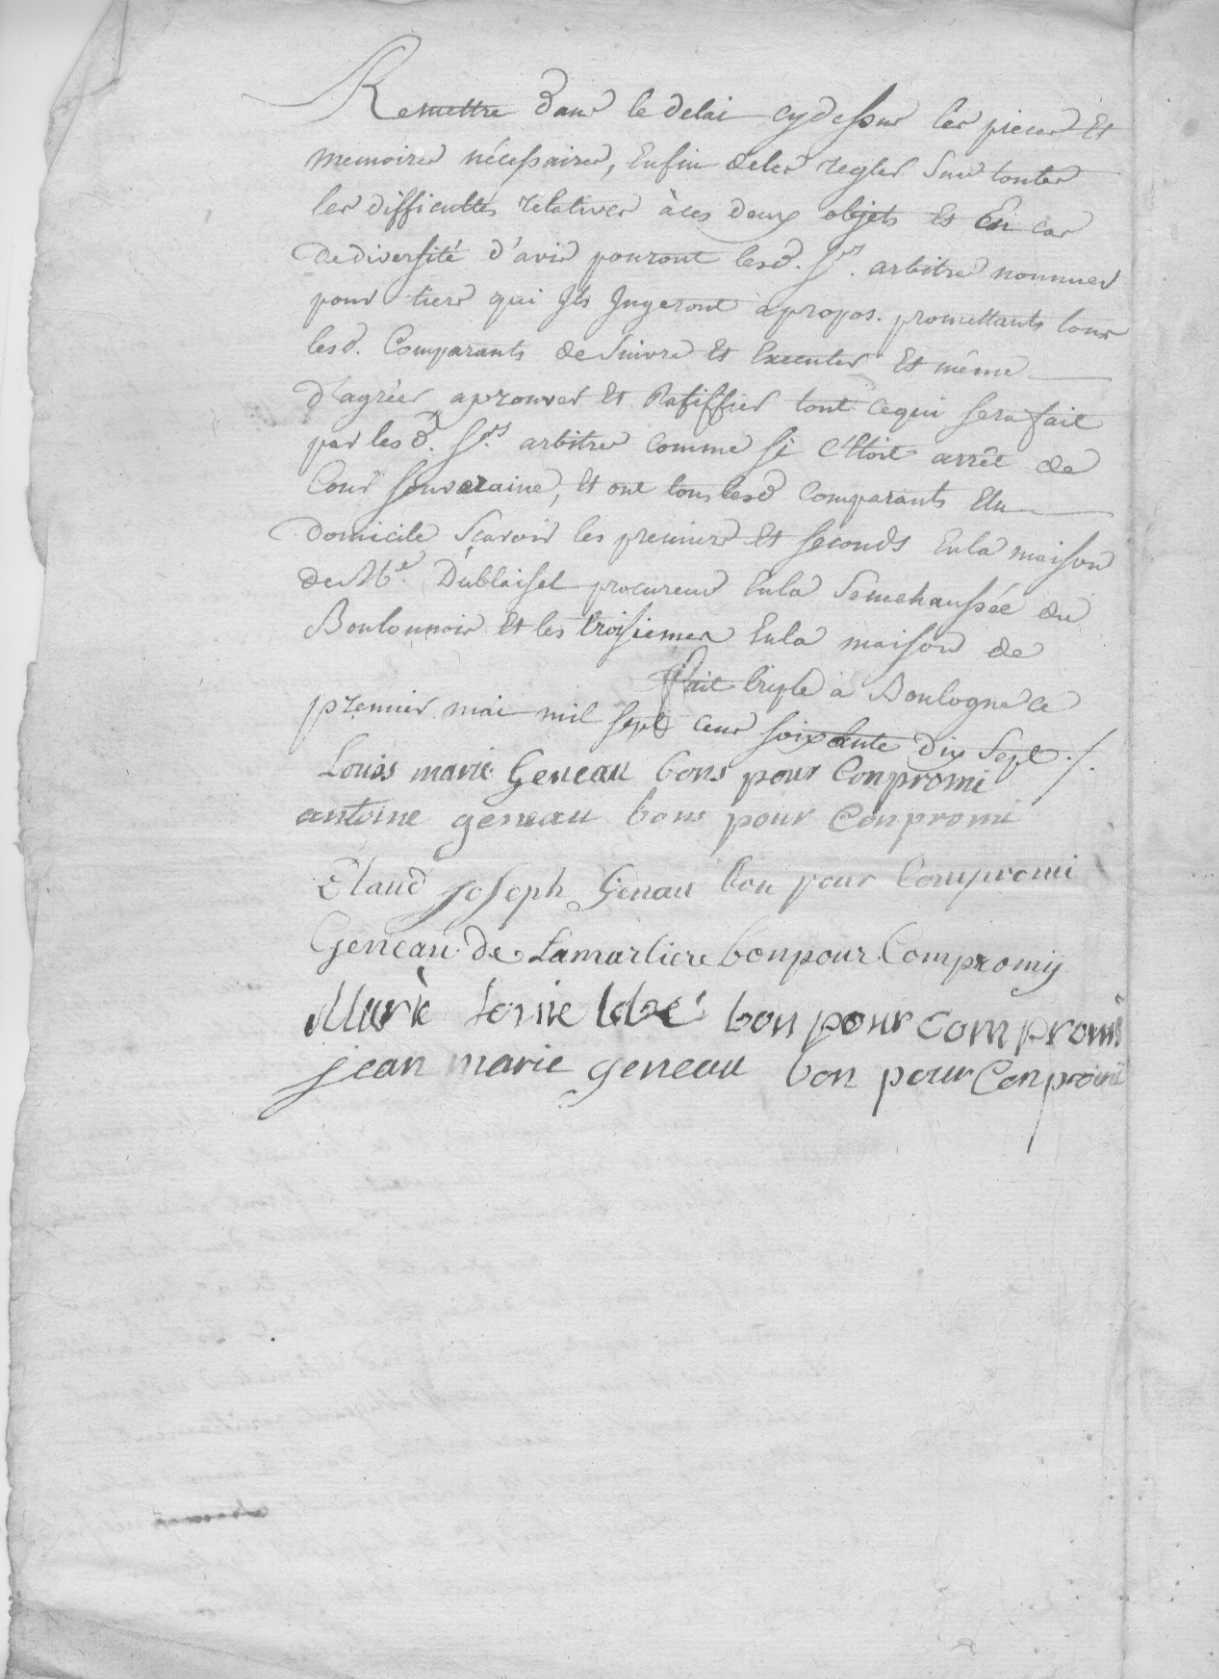 Remettre dans le delai cydessus les pieces Et
memoires nécessaires, Enfin deles regler sur toutes
les difficultés relatives àces deux objets Et En cas
dediversité d'avis pouront lesd. Srs. arbitres nommer
pour tiers qui Ils Jugeront apropos. promettants tous
lesd. Comparants de suivre Et Executer Et même
d'agréer aprouver Et Ratiffier tout cequi sera fait
par lesd. Srs. arbitres comme si c'Etoit arrêt de
Cour souveraine, Et ont tous lesd Comparants Elu
domicile Sçavoir les premiers Et seconds Enla maison
de Me. Dublaisel procureur Enla Senechaussée du
Boulonnois Et les troisiemes Enla maison de
fait triple a Boulogne ce
premier mai mil sept cens soixante Dix Sept ./.
Louis marie Geneau bons pour Conpromi
antoine geneau bons pour Conpromi
Claud Joseph Genau bon pour Compromi
Geneau de Lamarliere bonpour Compromis
Marie Louise bon pour compromi
jean marie geneau bon pour Conpromi